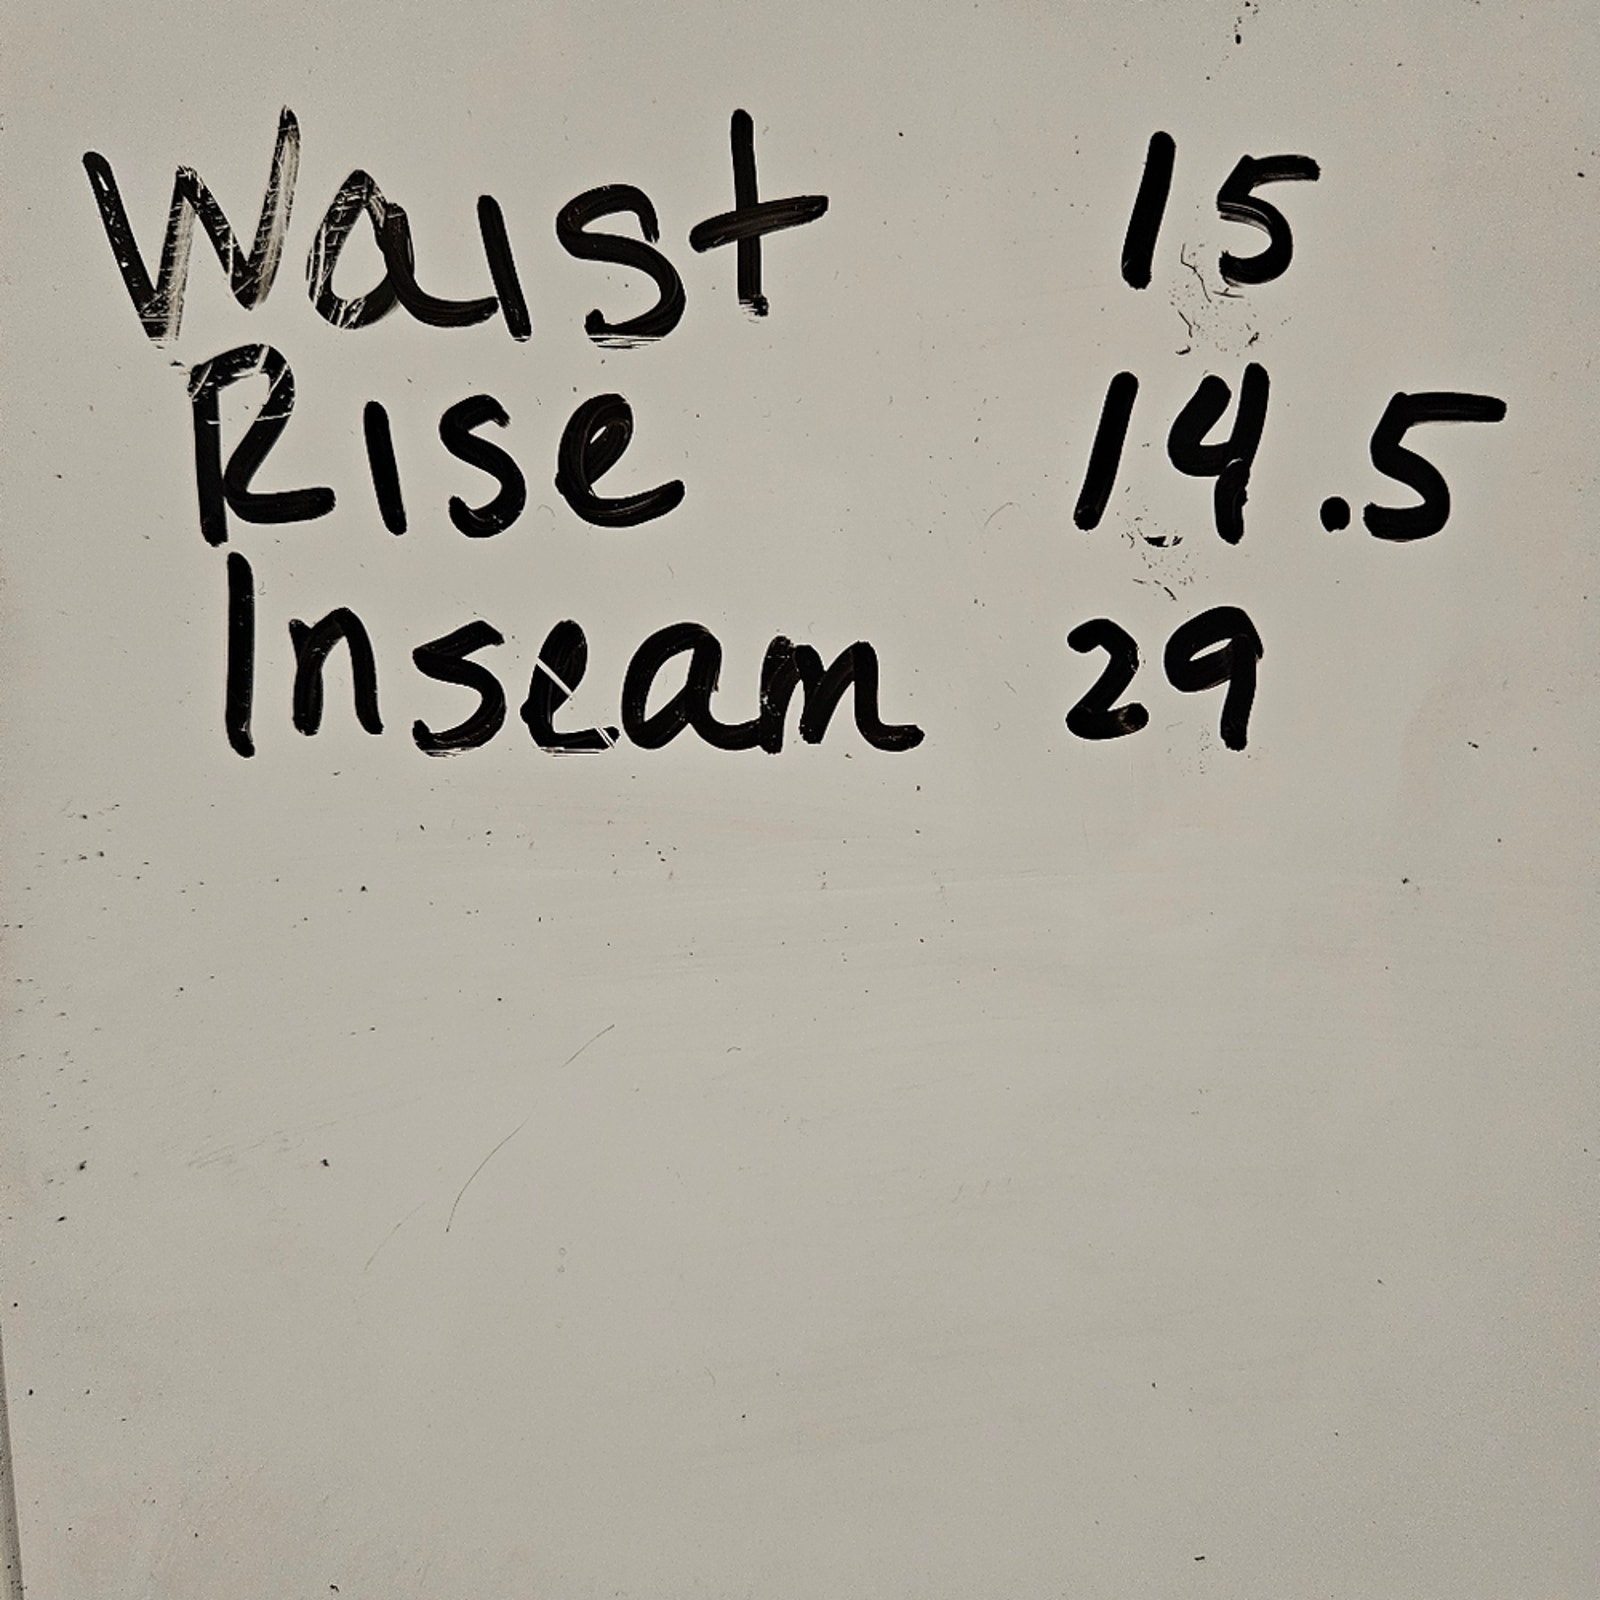 Waist 15
Rise 14.5
Inseam 29